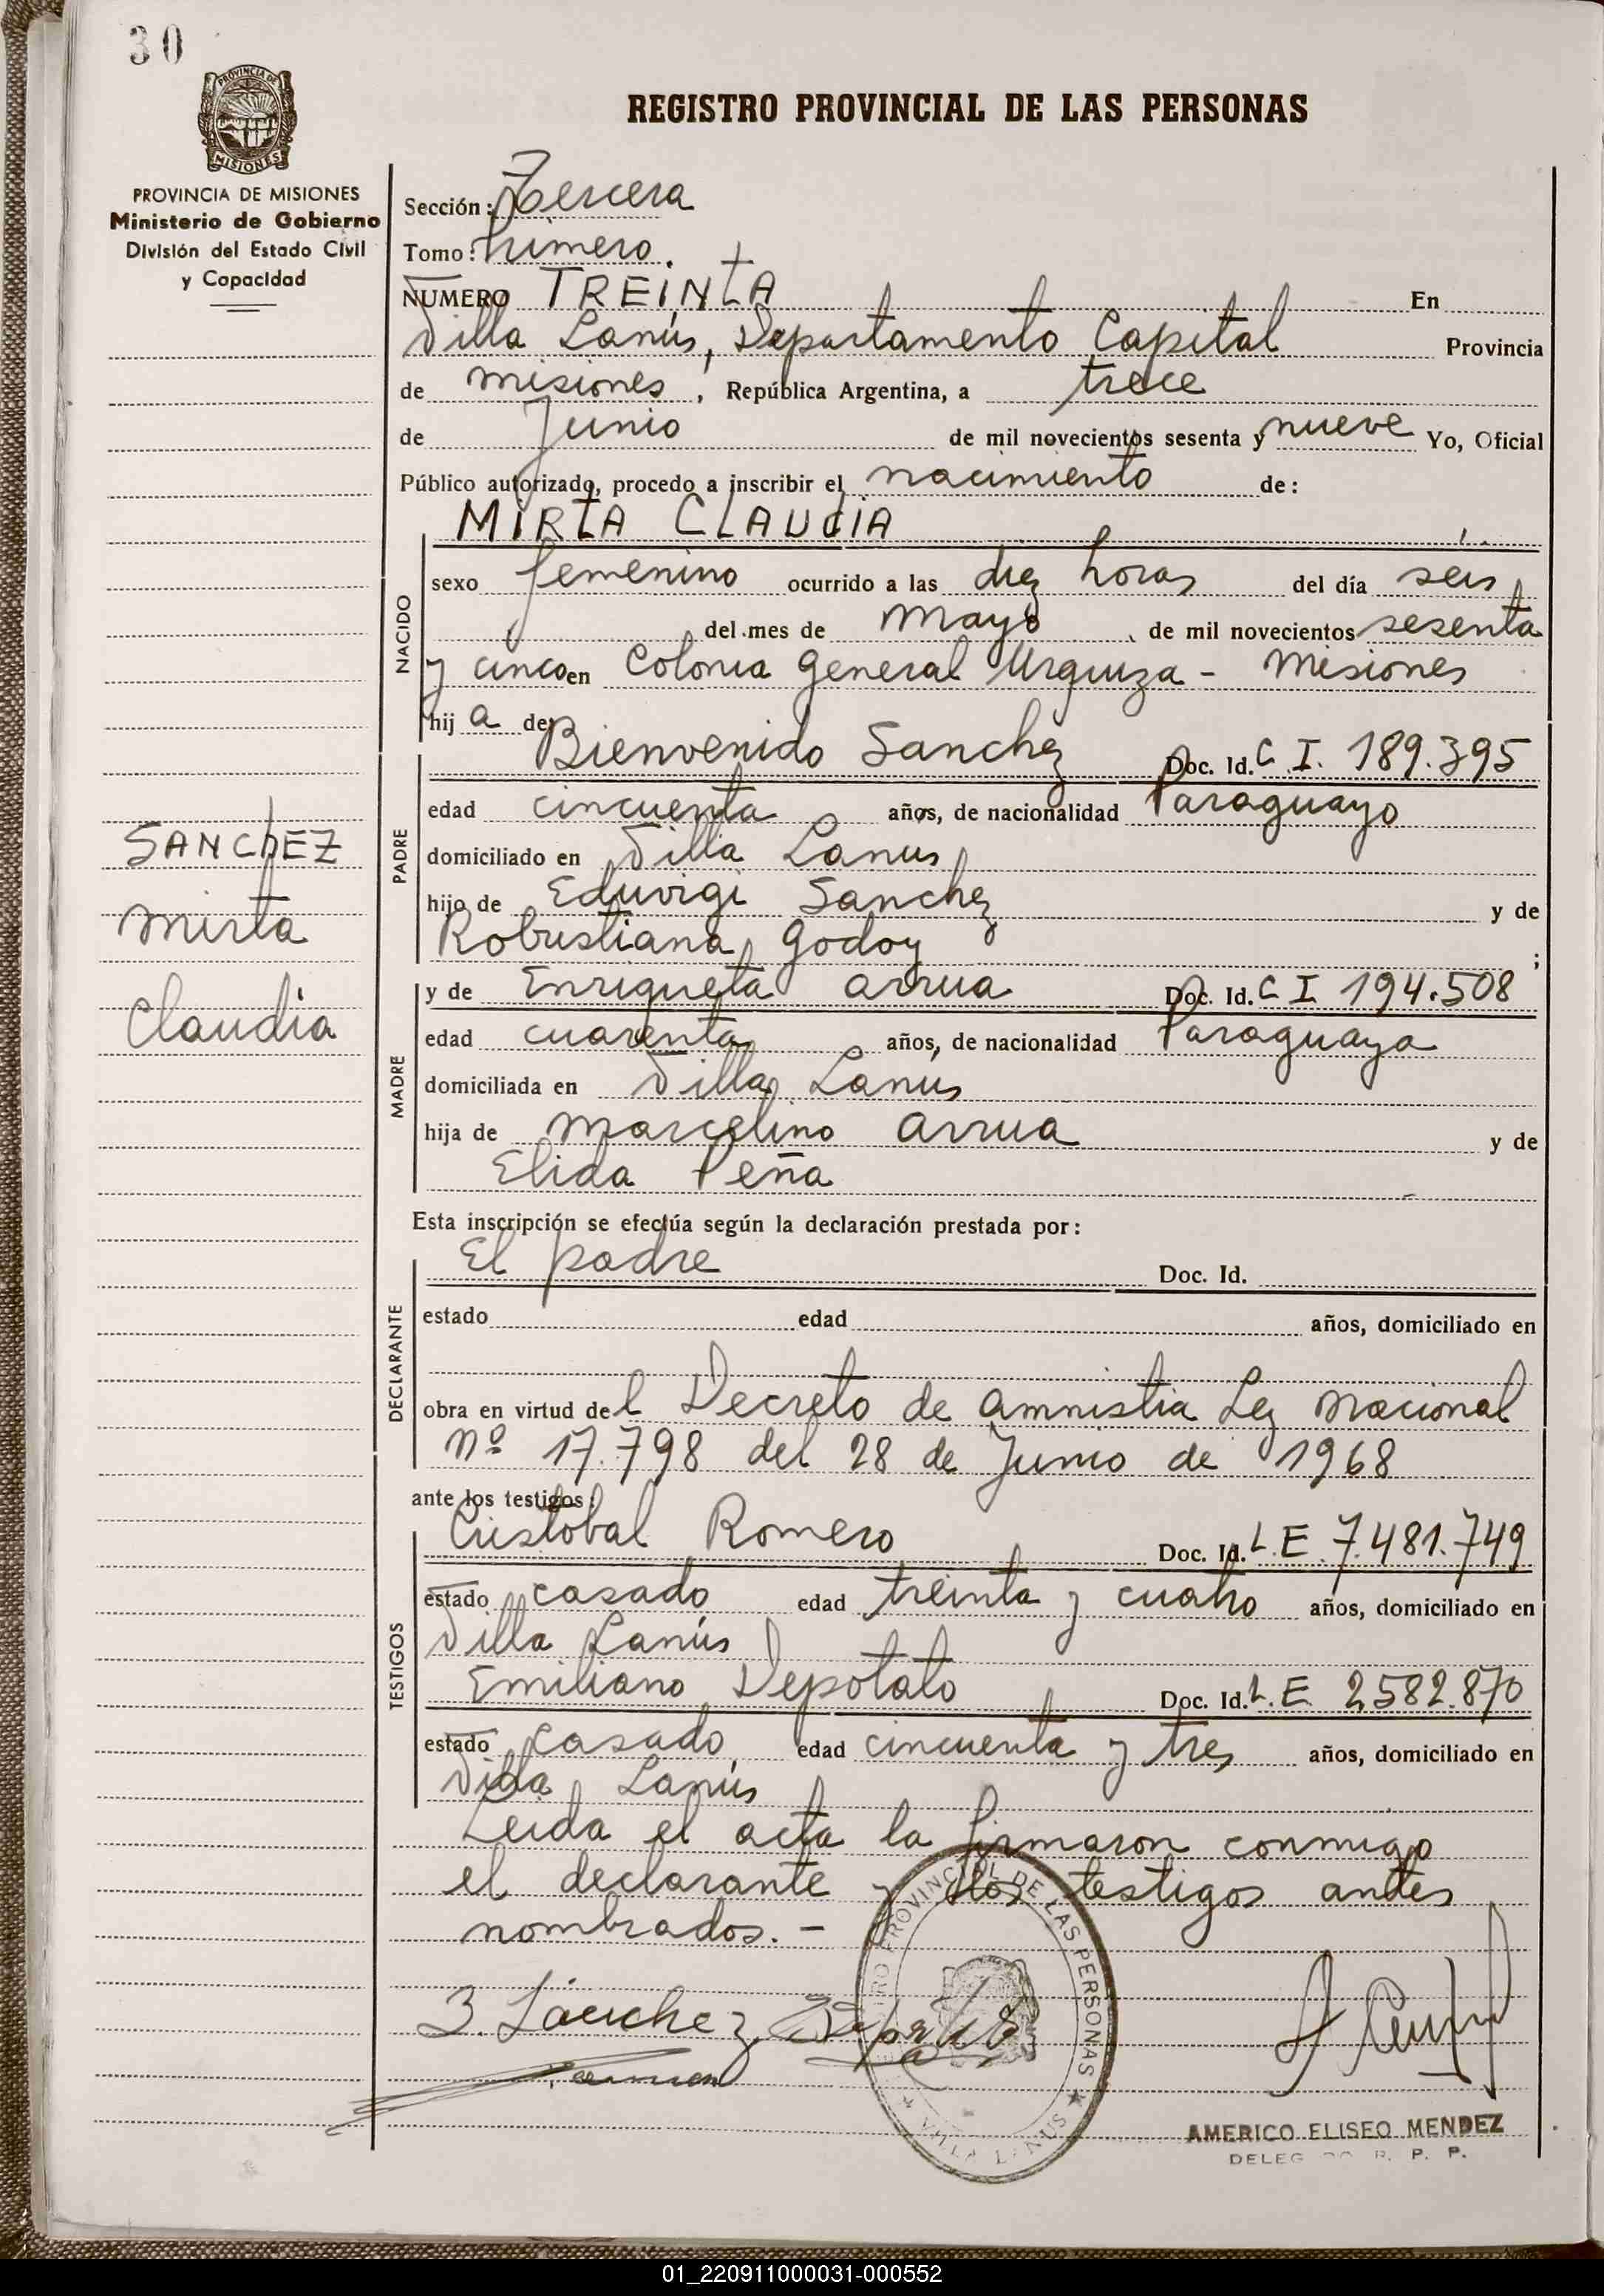 30
PROVINCIA DE
MISIONES
PROVINCIA DE MISIONES
Ministerio de Gobierno
División del Estado Civil
y Capacidad
REGISTRO PROVINCIAL DE LAS PERSONAS
Sección: Tercera
Tomo: Primero.
NUMERO TREINTA En
Villa Lanús, Departamento Capital Provincia
de Misiones, República Argentina, a trece
de Junio de mil novecientos sesenta y nueve Yo, Oficial
Público autorizado, procedo a inscribir el nacimiento de:
MIRTA CLAUDIA
NACIDO
sexo femenino ocurrido a las diez horas del día seis
del mes de mayo de mil novecientos sesenta
y cinco en Colonia General Urquiza - Misiones
hij a de
SANCHEZ
Mirta
Claudia
PADRE
Bienvenido Sanchez Doc. Id. C.I. 189.395
edad cincuenta años, de nacionalidad Paraguayo
domiciliado en Villa Lanus
hijo de Eduvigi Sanchez y de
Robustiana Godoy ;
MADRE
y de Enriqueta Arrua Doc. Id. C I 194.508
edad cuarenta años, de nacionalidad Paraguaya
domiciliada en Villa Lanus
hija de Marcelino Arrua y de
Elida Peña
Esta inscripción se efectúa según la declaración prestada por:
DECLARANTE
El padre Doc. Id.
estado edad años, domiciliado en
obra en virtud del Decreto de Amnistia Ley Nacional
Nº 17.798 del 28 de Junio de 1968
ante los testigos:
TESTIGOS
Cristobal Romero Doc. Id. L.E 7.481.749
estado casado edad treinta y cuatro años, domiciliado en
Villa Lanús
Emiliano Depotato Doc. Id. L.E. 2,582.870
estado casado edad cincuenta y tres años, domiciliado en
Villa Lanús
Leida el acta la firmaron conmigo
el declarante y los testigos antes
nombrados. -
REGISTRO PROVINCIAL DE LAS PERSONAS
VILLA LANUS
B. Sánchez
AMERICO ELISEO MENDEZ
DELEGADO R. P. P.
01_220911000031-000552